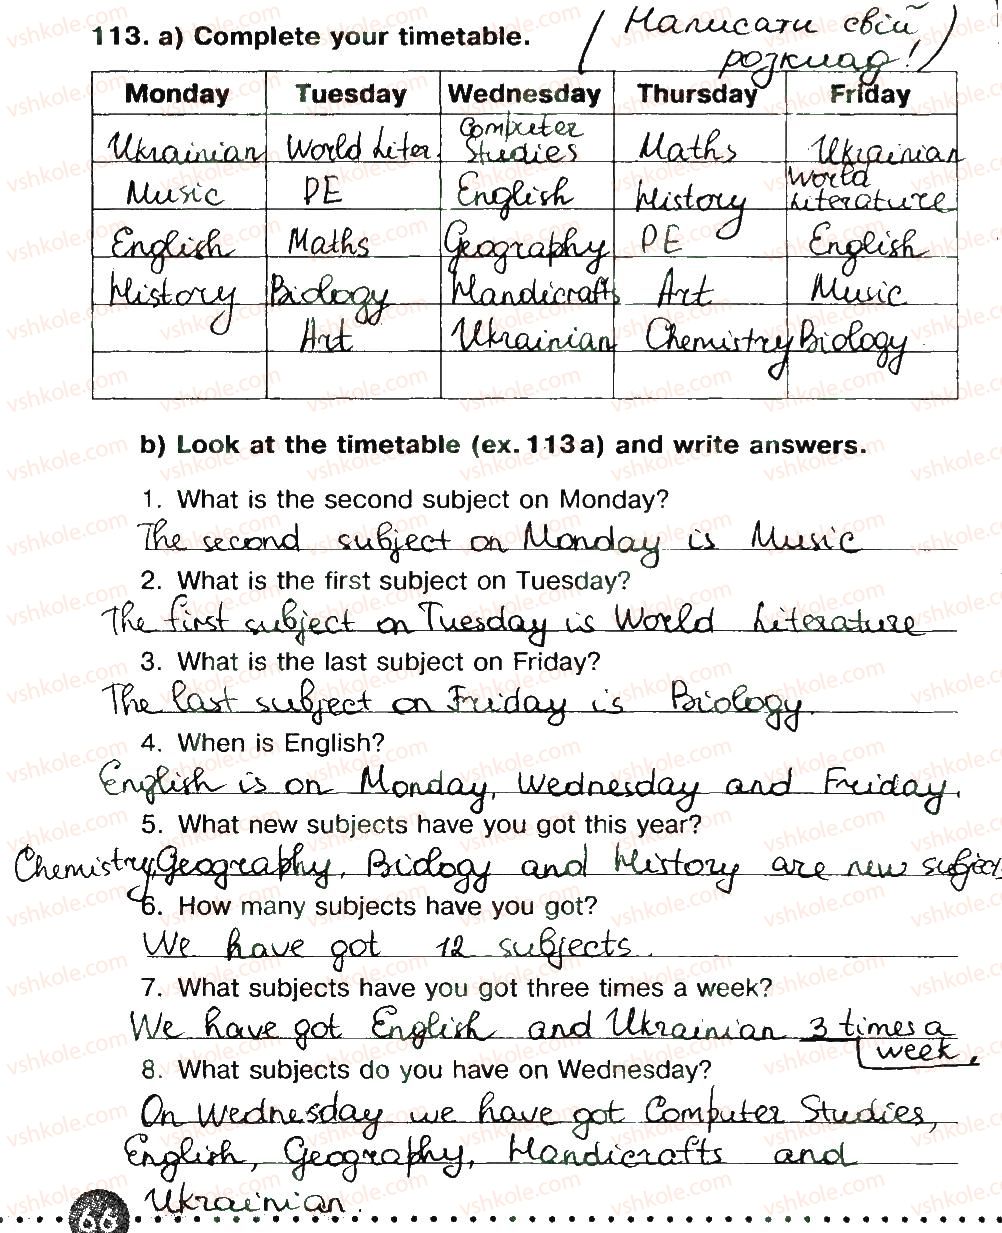 113. a) Complete your timetable.
(Написати свій
розклад!)
Monday Tuesday Wednesday Thursday Friday
Ukrainian World Liter. Computer Studies Maths Ukrainian
Music PE English History World Literature
English Maths Geography PE English
History Biology Handicrafts Art Music
Art Ukrainian Chemistry Biology
b) Look at the timetable (ex. 113 a) and write answers.
1. What is the second subject on Monday?
The second subject on Monday is Music
2. What is the first subject on Tuesday?
The first subject on Tuesday is World Literature
3. What is the last subject on Friday?
The last subject on Friday is Biology.
4. When is English?
English is on Monday, Wednesday and Friday.
5. What new subjects have you got this year?
Chemistry, Geography, Biology and History are new subjects
6. How many subjects have you got?
We have got 12 subjects.
7. What subjects have you got three times a week?
We have got English and Ukrainian 3 times a
week.
8. What subjects do you have on Wednesday?
On Wednesday we have got Computer Studies,
English, Geography, Handicrafts and
Ukrainian.
66
vshkole.com